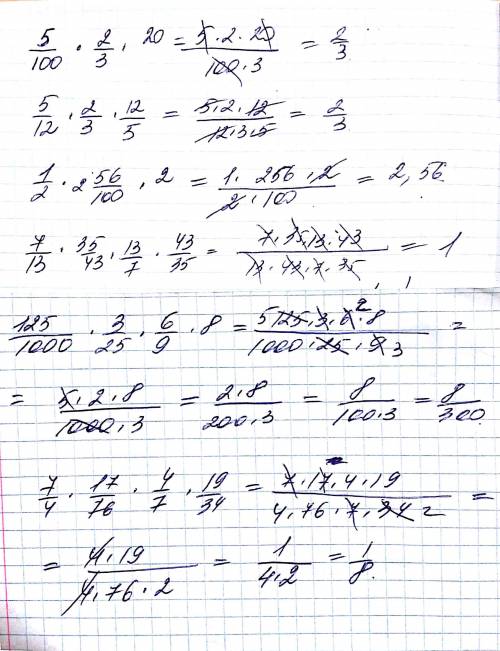 5/100 · 2/3 · 20 = 5·2·20/100·3 = 2/3
5/12 · 2/3 · 12/5 = 5·2·12/12·3·5 = 2/3
1/2 · 2 56/100 · 2 = 1·256·2/2·100 = 2,56
7/13 · 35/43 · 13/7 · 43/35 = 7·35·13·43/13·43·7·35 = 1
125/1000 · 3/25 · 6/9 · 8 = 5 125·3·6 2·8/1000·25·9 3 =
= 5·2·8/1000·3 = 2·8/200·3 = 8/100·3 = 8/300
7/4 · 17/76 · 4/7 · 19/34 = 7·17·4·19/4·76·7·34 2 =
= 4·19/4·76·2 = 1/4·2 = 1/8.